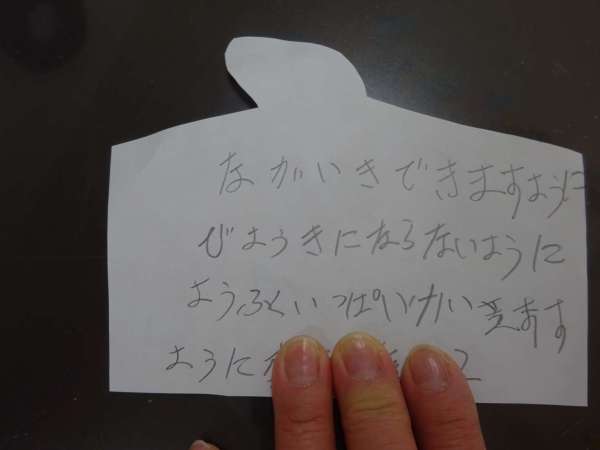 ながいきできますように
びょうきにならないように
ようふくいっぱいかいます
ように